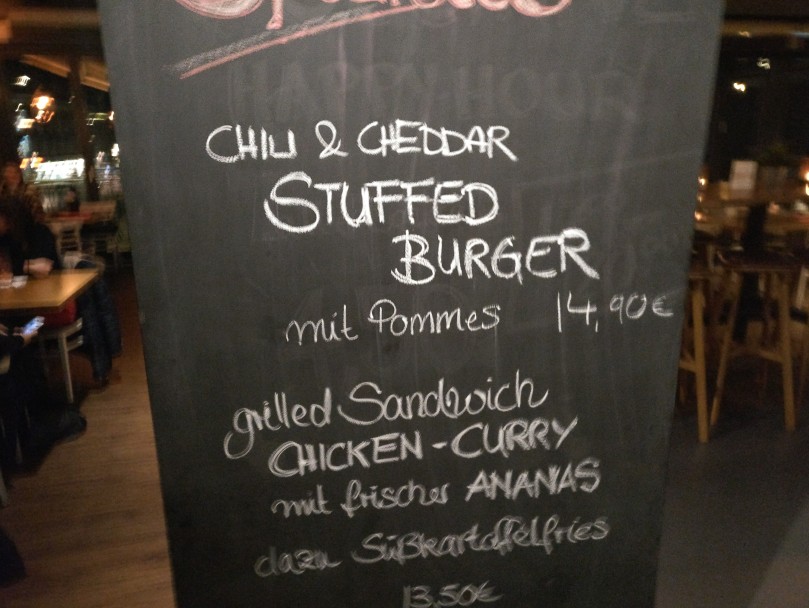 HAPPY HOUR
CHILI & CHEDDAR
STUFFED
BURGER
mit Pommes 14,90€
grilled Sandwich
CHICKEN-CURRY
mit frischer ANANAS
dazu Süßkartoffelfries
13,50€